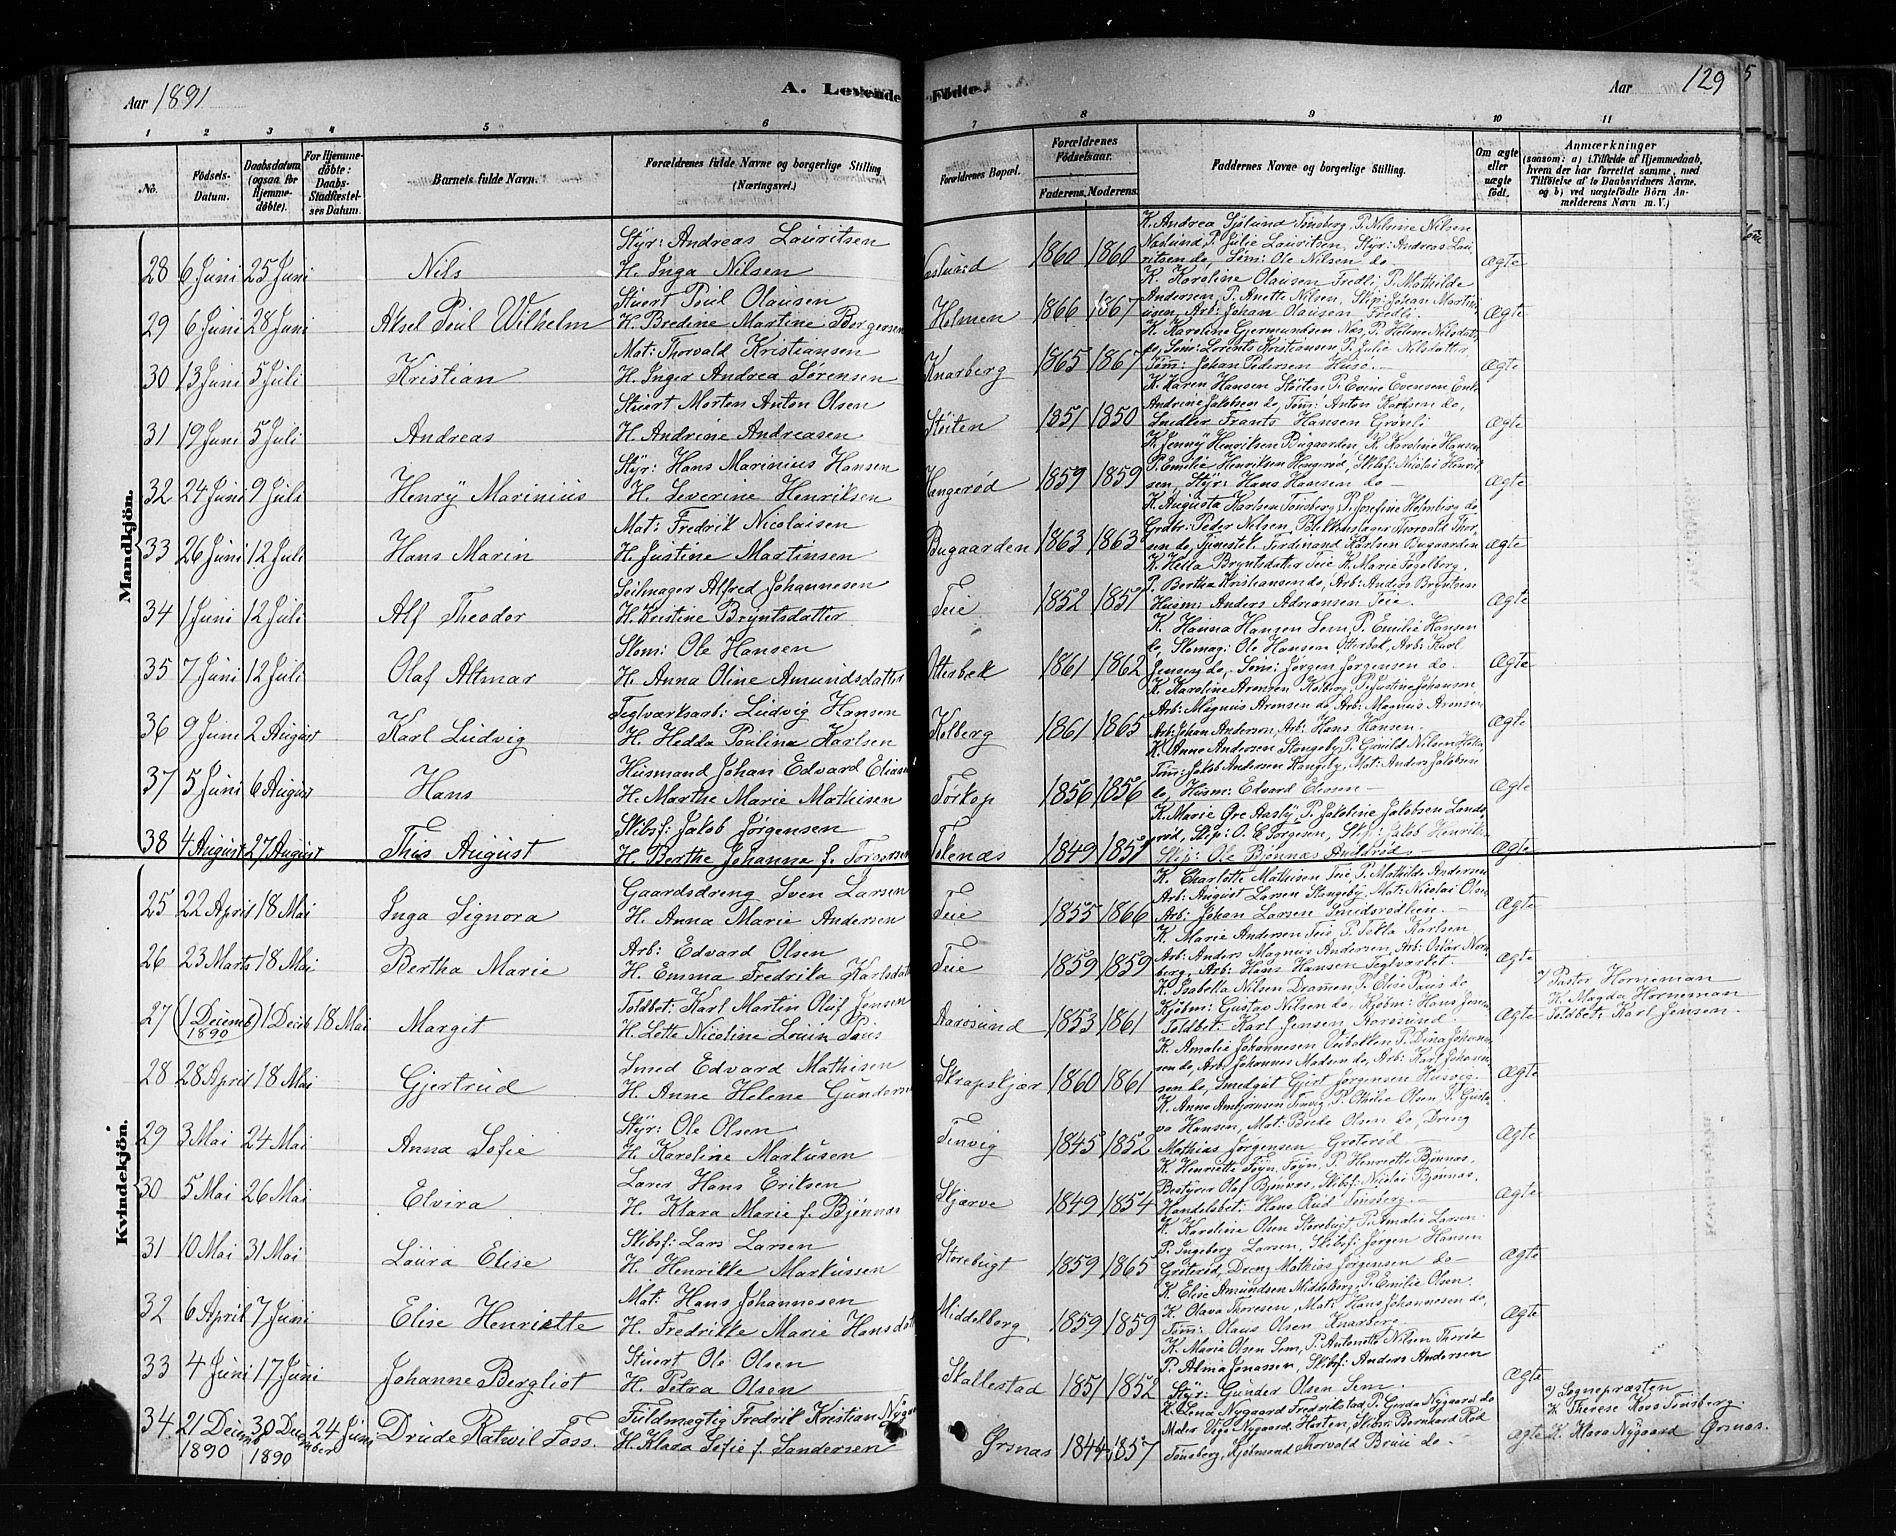 Aar 1891
A. Levende
Födte.
Aar
129
5
1 2 3 4 5 6 7 8 9 10 11
No.
Födsels-Datum.
Daabsdatum (ogsaa for Hjemme-döbte).
For Hjemme-döbte: Daabs-Stadfæstel-ses Datum.
Barnets fulde Navn.
Forældrenes fulde Navne og borgerlige Stilling (Næringsvei.)
Forældrenes Bopæl.
Forældrenes Födselsaar.
Faderens. Moderens.
Faddernes Navne og borgerlige Stilling.
Om ægte eller uægte födt.
Anmærkninger
(saasom: a) i Tilfælde af Hjemmedaab, hvem der har forrettet samme, med Tilföielse af to Daabsvidners Navne, og b) ved uægtefödte Börn An-melderens Navn m. V.)
Mandkjön.
28 6 Juni 25 Juni Nils Styr: Andreas Lauritsen H. Inga Nilsen 1860 1860 K. Andrea Sjølund Tønsberg, P. Nilsine Nilsen P. Julie Lauritsen, Styr: Andreas Lauritsen do, Tøm: Ole Nilsen do Ægte
29 6 Juni 28 Juni Aksel Poul Wilhelm Stuert Poul Olausen H. Bredine Martine Borgersen Holmen 1866 1867 K. Karoline Olausen P. Mathilde Andersen, P. Anette Nilsen, Skip: Johan Arb: Johan Olausen Ægte
30 13 Juni 5 Juli Kristian Mat: Thorvald Kristiansen H. Inger Andrea Sørensen Knarberg 1865 1867 K. Karoline Gjermundsen Næs, P. Helene Nilsdatter do, Tøm: Lorents Kristiansen, P. Julie Nilsdatter, Tøm: Johan Pedersen Husø. Ægte
31 19 Juni 5 Juli Andreas Stuert Morten Anton Olsen H. Andrine Andreasen Støiten 1851 1850 K. Karen Hansen Støiten P. Evine Evensen Andrine Jakobsen do, Tøm: Anton Karlsen do, Snedker Frants Hansen Ægte
32 24 Juni 9 Juli Henry Marinius Styr: Hans Marinius Hansen H. Severine Henriksen Hengerød 1859 1859 K. Jenny Henriksen Bugaarden, K. Karoline Hansen P. Emilie Henriksen Hengerød, Skibsf: Nicolai Henriksen, Styr: Hans Hansen do Ægte
33 26 Juni 12 Juli Hans Marin Mat: Fredrik Nicolaisen H. Justine Martinsen Bugaarden 1863 1863 K. Augusta Karlsen Tønsberg, P. Josefine Holmberg do Peder Nilsen, Blikkenslager Thorvald Thorsen do, Ferdinand Karlsen Bugaarden Ægte
34 1 Juni 12 Juli Alf Theodor Seilmager Alfred Johannesen H. Kristine Bryntsdatter Teie 1852 1857 K. Hella Bryntsdatter Teie K. Marie P. Bertha Kristiansen do, Arb: Anders Bryntsen Husm: Anders Adreansen Teie. Ægte
35 7 Juni 12 Juli Olaf Altmar Skom: Ole Hansen H. Anna Oline Amundsdatter Otterbæk 1861 1862 K. Hanna Hansen Sem, P. Emilie Hansen do, Skomag: Ole Hansen Otterbæk, Arb: Karl Jensen do, Tøm: Jørgen Jørgensen do. Ægte
36 9 Juni 2 August Karl Ludvig Teglværksarb: Ludvig Hansen H. Hedda Pouline Karlsen Kolberg 1861 1865 K. Karoline Aronsen Kolberg, P. Justine Johansen, Arb: Magnus Aronsen do, Arb: Magnus Aronsen, Arb: Johan Andersen, Arb: Hans Hansen. Ægte
37 5 Juni 6 August Hans Husmand Johan Edvard Eliasen H. Marthe Marie Mathisen Torkop 1856 1856 K. Anne Andersen Stangeby, P. Gunild Nilsen Tøm: Jakob Andersen Stangeby, Mat: Anders Jakobsen do, Husm: Edvard Eliasen Ægte
38 4 August 27 August This August Skibsf: Jakob Jørgensen H. Berthe Johanne f. Torversen Tokenæs 1849 1857 K. Marie Øre Aasly, P. Jakobine Jakobsen Skip: O. C. Jørgensen, Jakob Henriksen Skip: Ole Bjønnæs Ægte
Kvindekjön.
25 22 April 18 Mai Inga Signora Gaardsdreng Sven Larsen H. Anna Marie Andersen Teie 1855 1866 K. Charlotte Mathisen Teie P. Mathilde Andersen Arb: August Larsen Stangeby, Mat: Nicolai Olsen Arb: Johan Larsen Smidsrødlien. Ægte
26 23 Marts 18 Mai Bertha Marie Arb: Edvard Olsen H. Emma Fredrika Karlsdatter Teie 1859 1859 K. Marie Andersen Teie P. Tekla Karlsen Arb: Anders Magnus Andersen, Arb: Oskar Norberg, Arb: Hans Hansen Teglværket Ægte
27 (1 Decemb 1890) 1 Decb 18 Mai Margit Toldbet: Karl Martin Oluf Jensen H. Lotte Nicoline Louise Paus Aarøsund 1853 1861 K. Isabella Nilsen Drammen, P. Elise Paus do Kjøbm: Gustav Nilsen do, Kjøbm: Hans Jensen Toldbet: Karl Jensen Aarøsund. Ægte Pastor Horneman K. Magda Horneman Toldbet: Karl Jensen.
28 28 April 18 Mai Gjertrud Smed Edvard Mathisen H. Anne Helene Gundersen Skrapskjær 1860 1861 K. Amalie Johannesen P. Dina Johannesen do, Arb: Johannes Madsen do, Arb: Karl Johansen do, Smedgut Gjert Jørgensen Husvig. Ægte
29 3 Mai 24 Mai Anna Sofie Styr: Ole Olsen H. Karoline Markusen Tenvig 1845 1852 K. Anna Ambjørnsen Tenvig, P. Othilie Olsen, P. Gustava Hansen, Mat: Brede Olsen do, Dreng Mathias Jørgensen Grøterød Ægte
30 5 Mai 26 Mai Elvira Lærer Hans Eriksen H. Klara Marie f. Bjønnæs Skjærve 1849 1854 K. Henriette Føyn, Føyn, P. Henriette Bjønnæs, Bestyrer Olaf Bjønnæs, Skibsf: Nicolai Bjønnæs, Handelsbet: Hans Rud Tønsberg. Ægte
31 10 Mai 31 Mai Laura Elise Skibsf: Lars Larsen H. Henrikke Markussen Storebugt 1859 1865 K. Karoline Olsen Storebugt, P. Amalie Larsen P. Ingeborg Larsen, Skibsf: Jørgen Hansen Grøterød, Dreng Mathias Jørgensen do Ægte
32 6 April 7 Juni Elise Henriette Mat: Hans Johannesen H. Fredrikke Marie Hansdatter Middelborg 1859 1859 K. Elise Amundsen Middelborg, P. Emilie Olsen, K. Olava Thoresen, Mat: Hans Johannesen do, Tøm: Olaus Olsen Knarberg Ægte
33 4 Juni 17 Juni Johanne Bergliot Stuert Ole Olsen H. Petra Olsen Skallestad 1851 1852 K. Marie Olsen Sem, P. Antonette Nilsen Thorød P. Alma Jonassen, Skibsf: Anders Andersen Styr: Gunder Olsen Sem Ægte
34 21 Decemb 1890 30 December 1890 24 Juni Drude Ratwil Foss. Fuldmægtig Fredrik Kristian Nygaard H. Klara Sofie f. Sandersen Ørsnæs 1844 1857 K. Lena Nygaard Fredrikstad, P. Gerda Nygaard do Maler Vige Nygaard Horten, Skibsr: Bernhard Rød Tønsberg, Kjøbmand Thorvald Bruu do Ægte a) Sognepræsten K. Therese Roos Tønsberg. K. Klara Nygaard Ørsnæs.